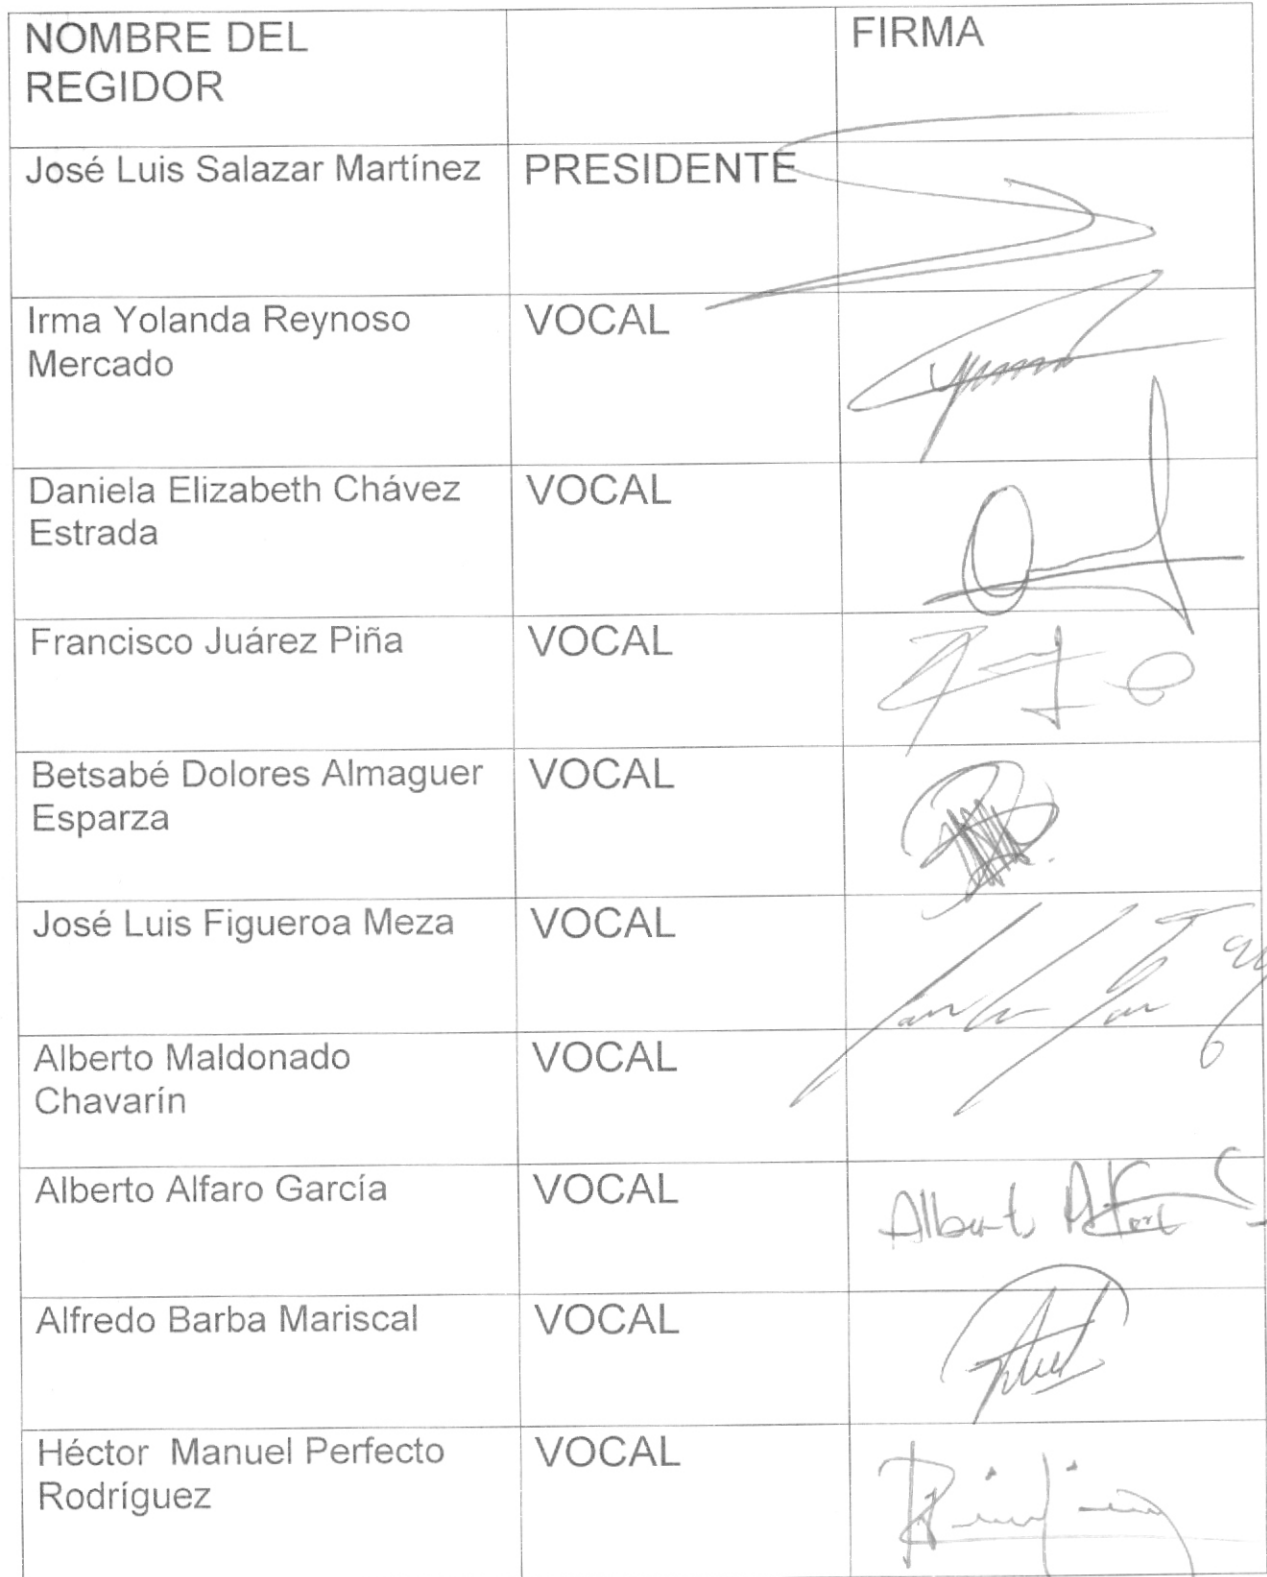 NOMBRE DEL
REGIDOR
FIRMA
José Luis Salazar Martínez
PRESIDENTE
Irma Yolanda Reynoso
Mercado
VOCAL
Daniela Elizabeth Chávez
Estrada
VOCAL
Francisco Juárez Piña
VOCAL
Betsabé Dolores Almaguer
Esparza
VOCAL
José Luis Figueroa Meza
VOCAL
Alberto Maldonado
Chavarín
VOCAL
Alberto Alfaro García
VOCAL
Alfredo Barba Mariscal
VOCAL
Héctor  Manuel Perfecto
Rodríguez
VOCAL